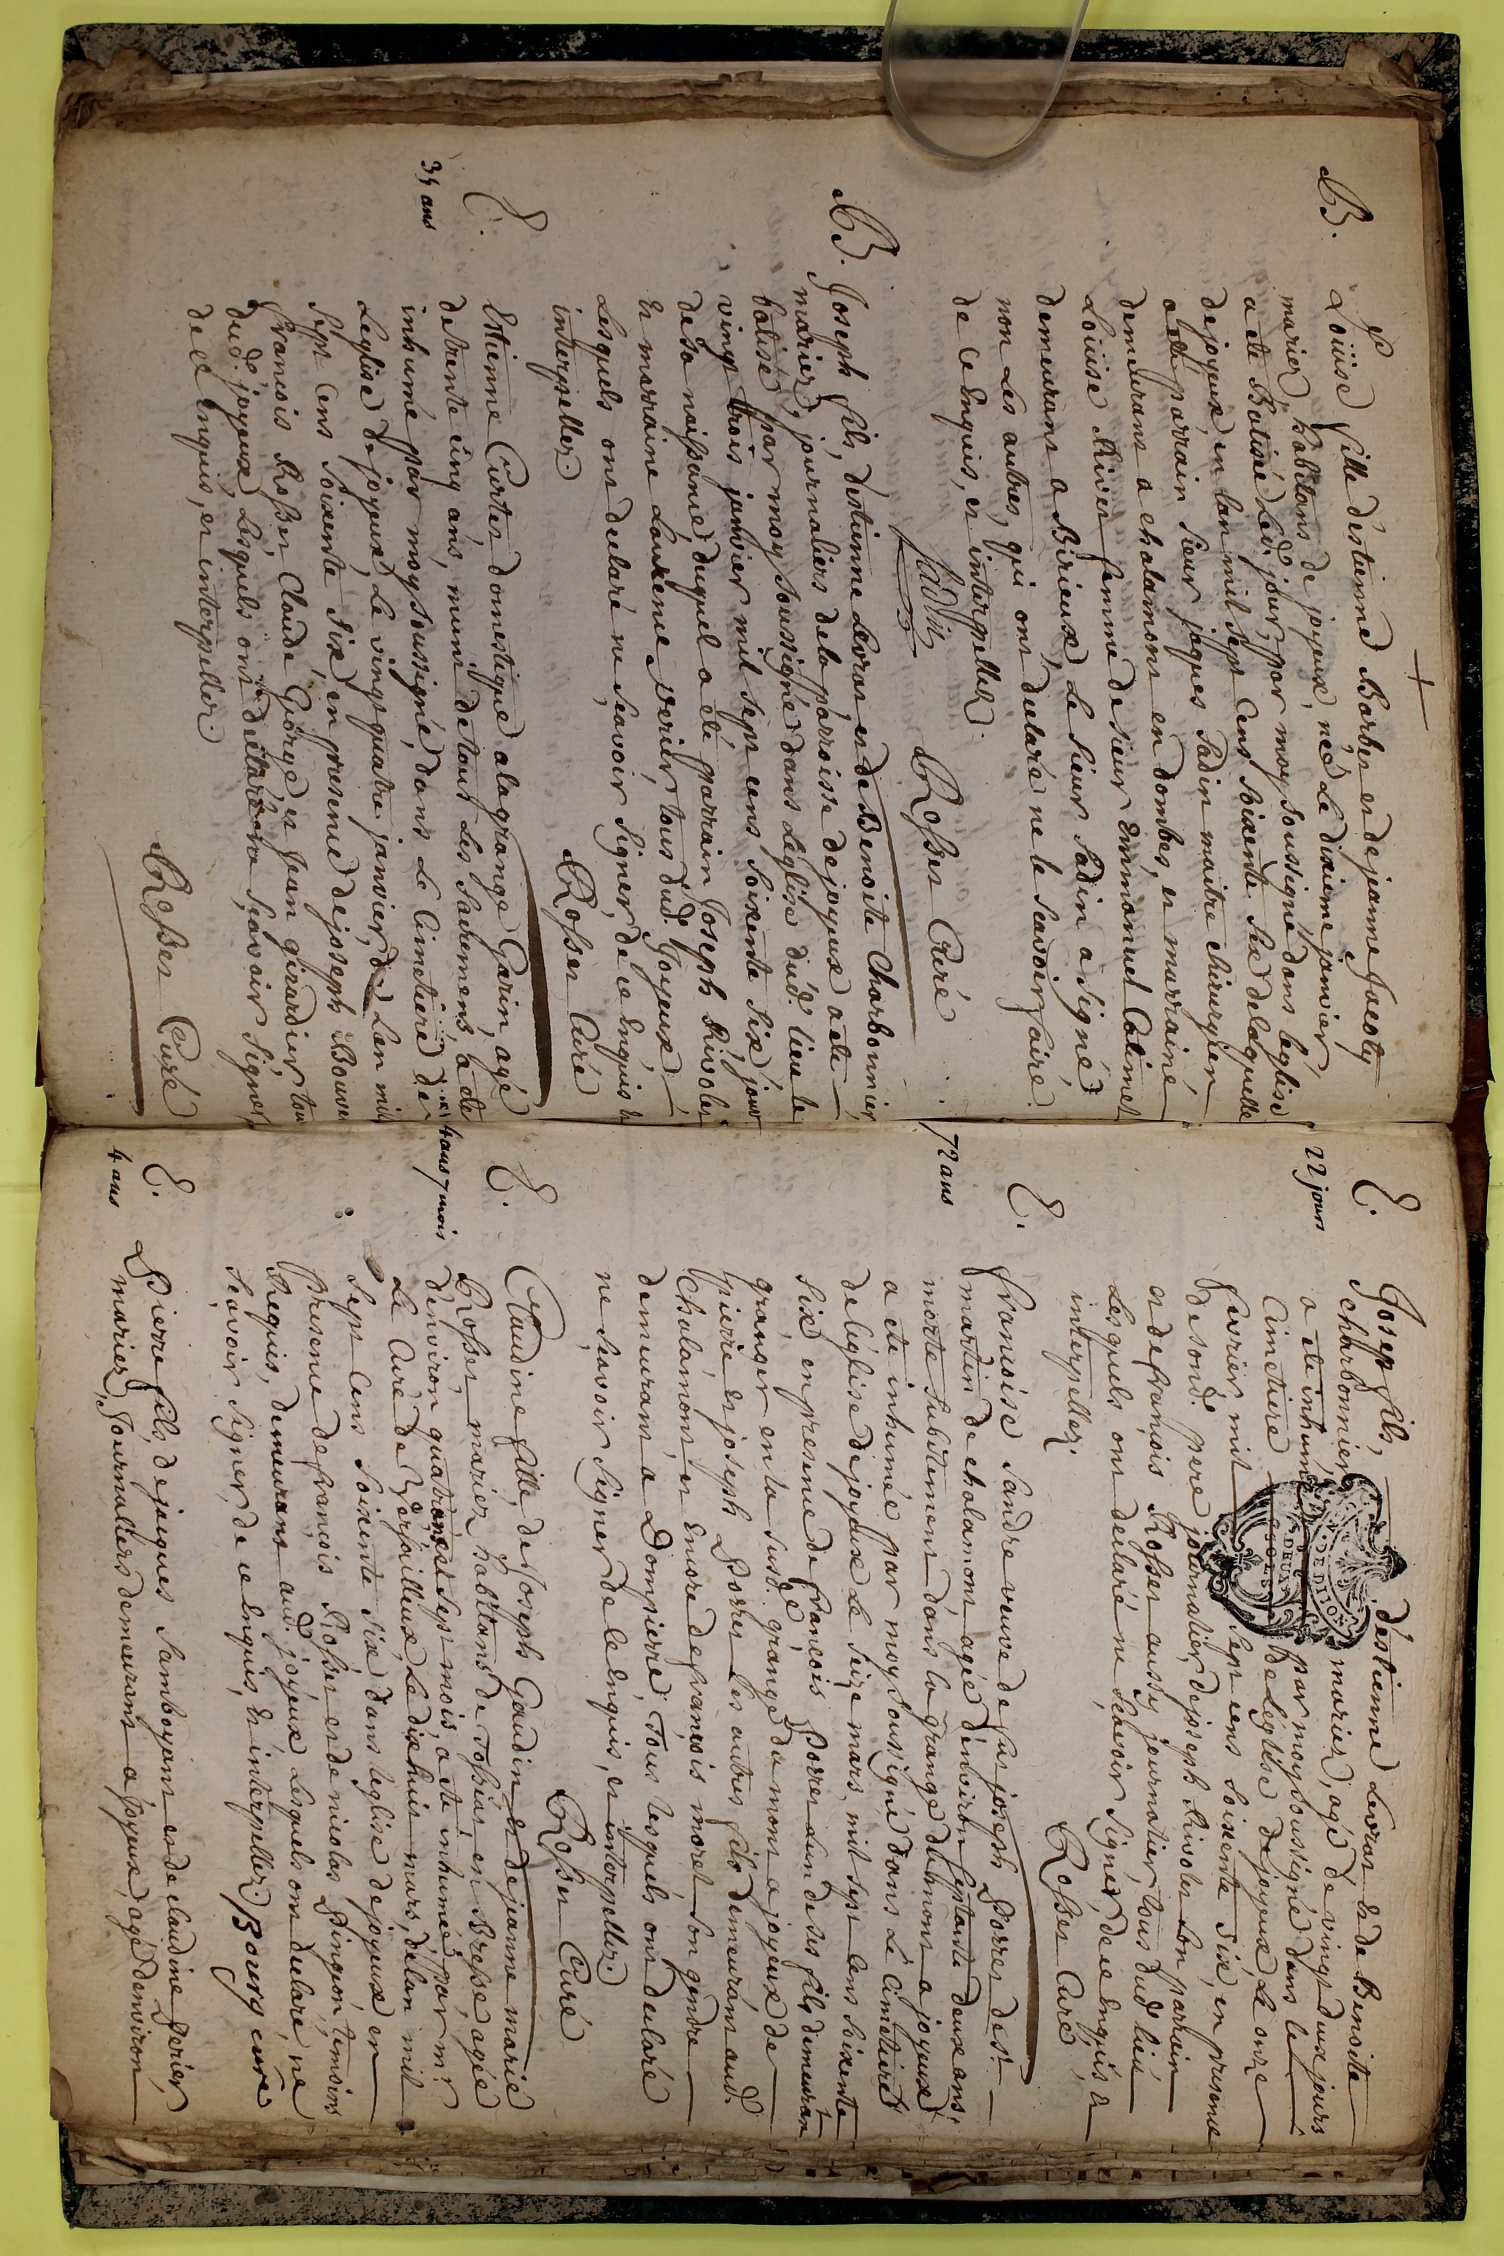 B. Loüise fille d'éstienne Barba et de janne Jacoly
mariez, habitans de joyeux, née le dixieme janvier
a eté Batisé led. jour, par moy soussigné dans léglise
de joyeux, en lan mil sept cens soixente six de laquelle
a eté parrain sieur jaques Sadin maitre chirurgien
demeurans a chalamont en dombes, et marrainé
Loüise River femme de sieur Emmanuel Calimel
demeurans a Birieux, le sieur Sadin a signé
non les autres, qui ont declaré ne le scavoir fairé
de ce Enquis, et interpellez.
Sadin
Rosset Curé
B. Joseph fils, déstienne Levrat et de Benoite Charbonnier
mariez, journaliers de la parroisse de joyeux a eté
batisé par moy soussigné dans Léglise dud. lieu le
vingt trois janvier mil sept cens soixente six jour
de sa naissance, duquel a eté parrain Joseph Rivolet
et marraine Laurence Verier, tous dud. Joyeux
Lesquels ont declaré ne scavoir signer, de ce Enquis et
interpellez.
Rosset Curé
E.
35 ans
Estienne Curtet, domestique a la grange Garin, agé
de trente cinq ans, muni de tous les sacremens, a eté
inhumé par moy soussigné, dans le Cimetiere de
Leglise de joyeux, le vingt quatre janvier, de Lan mil
sept cens soixente six, en presence de joseph Bouvie
francois Rosset Claude George et Jean girardier tous
dud. joyeux Lesquels ont declaré ne scavoir signer
de ce Enquis, et interpellez.
Rosset Curé
E.
22 jours
Joseph fils, déstienne Levrat et de Benoite
charbonnier mariez, agé de vingt deux jours
a eté inhumé par moy soussigné dans le
Cimetiere de Léglise de joyeux, le onze
fevrier mil sept cens soixente six, en presence
de sond. pere journalier, de joseph Rivolet son parrain
et de francois Rosset aussy journalier, tous dud. lieu
Lesquels ont declaré ne scavoir signer, de ce Enquis et
interpellez.
Rosset Curé
E.
72 ans
francoise Sandre veuve de fut joseph Porret de St
martin de chalamont, agée d'environ septante deux ans,
morte subitement dans la grange du mont a joyeux
a eté inhumée par moy soussigné dans le Cimetiere
de léglise de joyeux le seize mars, mil sept cens soixente
six en presence de francois Porret lun de ses fils demeurant
granger en la susd. grange du mont a joyeux de
pierre et joseph Porret les autres fils demeurant aud.
Chalamont et Encore de francois moret son gendre
demeurant a Dompierre, Tous lesquels ont declaré
ne scavoir signer de ce Enquis, et interpellez.
Rosset Curé
E.
4 ans 7 mois
Claudine fille, de Joseph Gaudin et de jeanne marie
Rosset mariez habitans de Tossiat en Bresse agée
d'environ quatre ans et sept mois, a eté inhumée par mr
Le Curé de Versailleux, Le dix huit mars, de lan mil
sept cens soixente six dans leglise de joyeux en
presence de francois Rosset et de nicolas Pingeon, temoins
Requis, demeurans aud. joyeux Lesquels ont declaré ne
scavoir signer, de ce Enquis, et interpellez. Bourg curé
E.
4 ans
Pierre fils, de jacques Samboyant et de claudine Perier,
mariez, Journaliers demeurans a Joyeux, agé denviron
DE DIJON
DEUX
SOLS